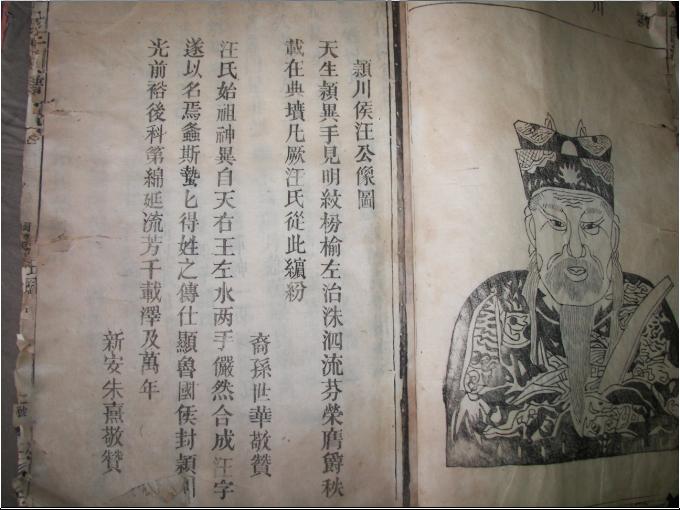 潁川侯汪公像圖
天生穎異手見明紋枌榆左治洙泗流芬榮膺爵秩
載在典墳凡厥汪氏從此繽紛
裔孫世華敬贊
汪氏始祖神異自天右王左水两手儼然合成汪字
遂以名焉螽斯蟄匕得姓之傳仕顯魯國侯封潁川
光前裕後科第綿延流芳千載澤及萬年
新安朱熹敬贊